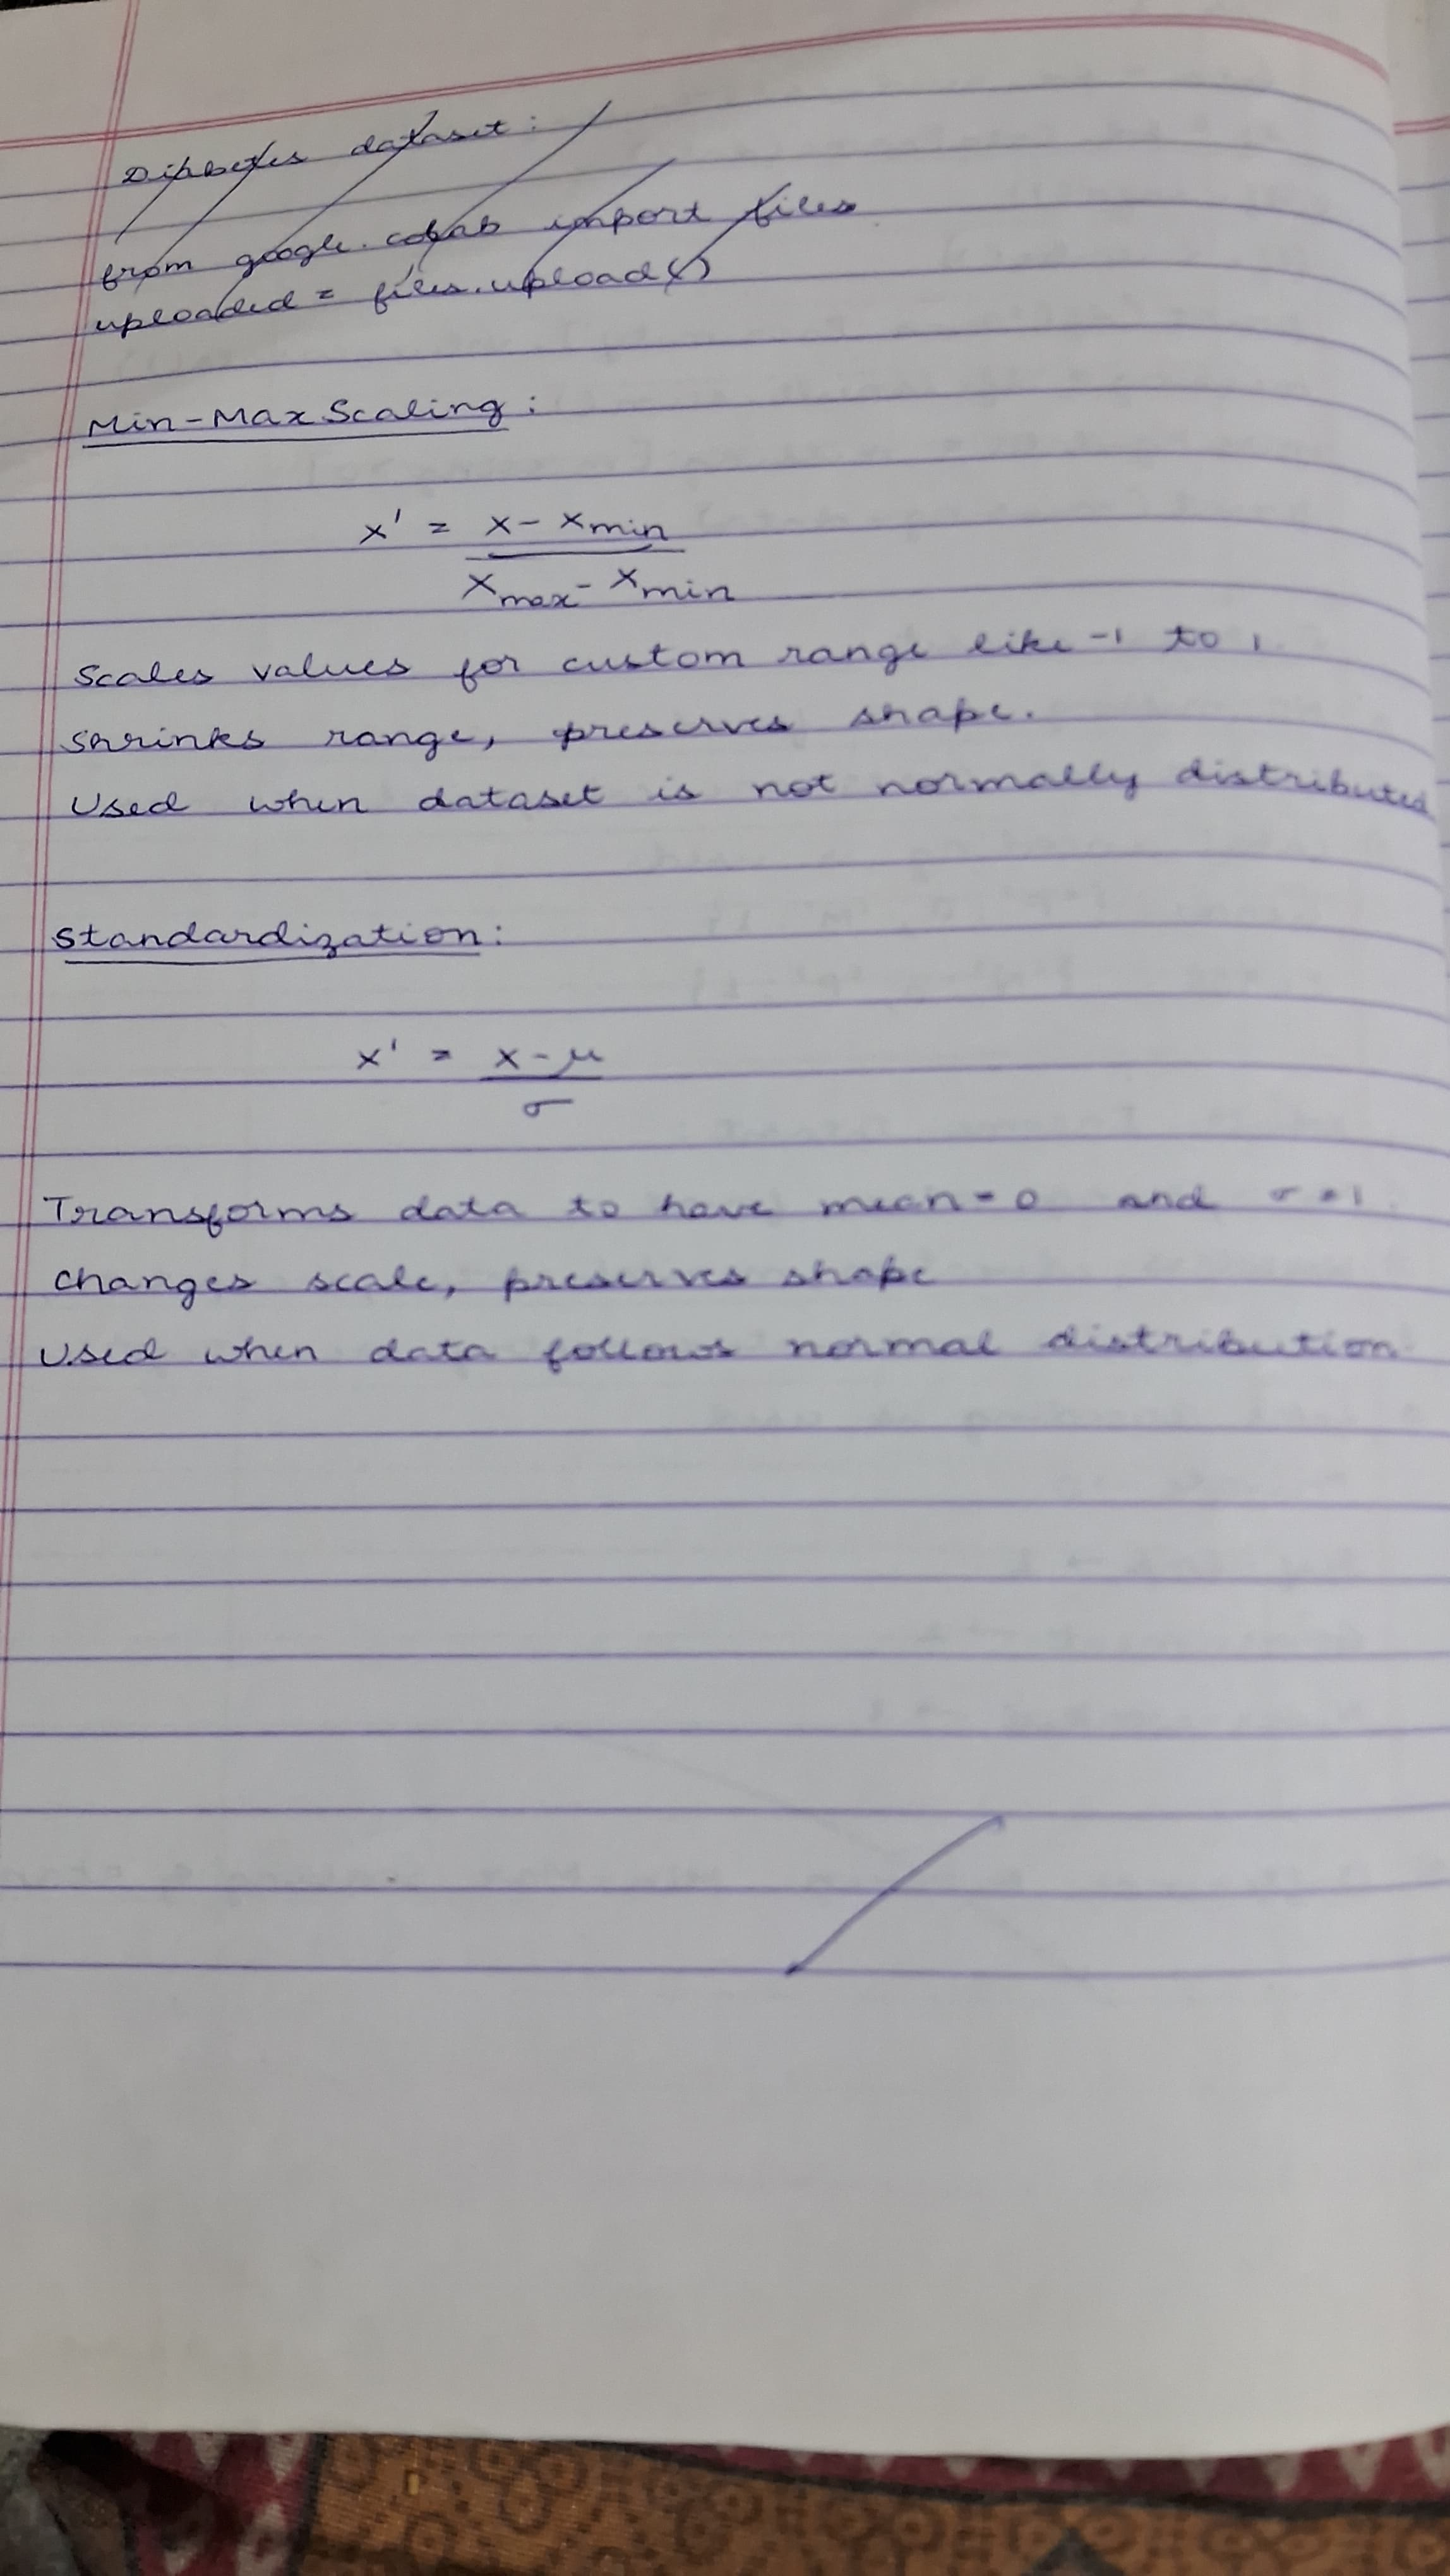 Diabetes dataset:
from google.colab import files
uploaded = files.upload()
Min-Max Scaling:
x' = x - xmin
xmax - xmin
Scales values for custom range like -1 to 1
Shrinks range, preserves shape.
Used when dataset is not normally distributed
Standardization:
x' = x - μ
σ
Transforms data to have mean = 0 and σ = 1.
Changes scale, preserves shape
Used when data follows normal distribution